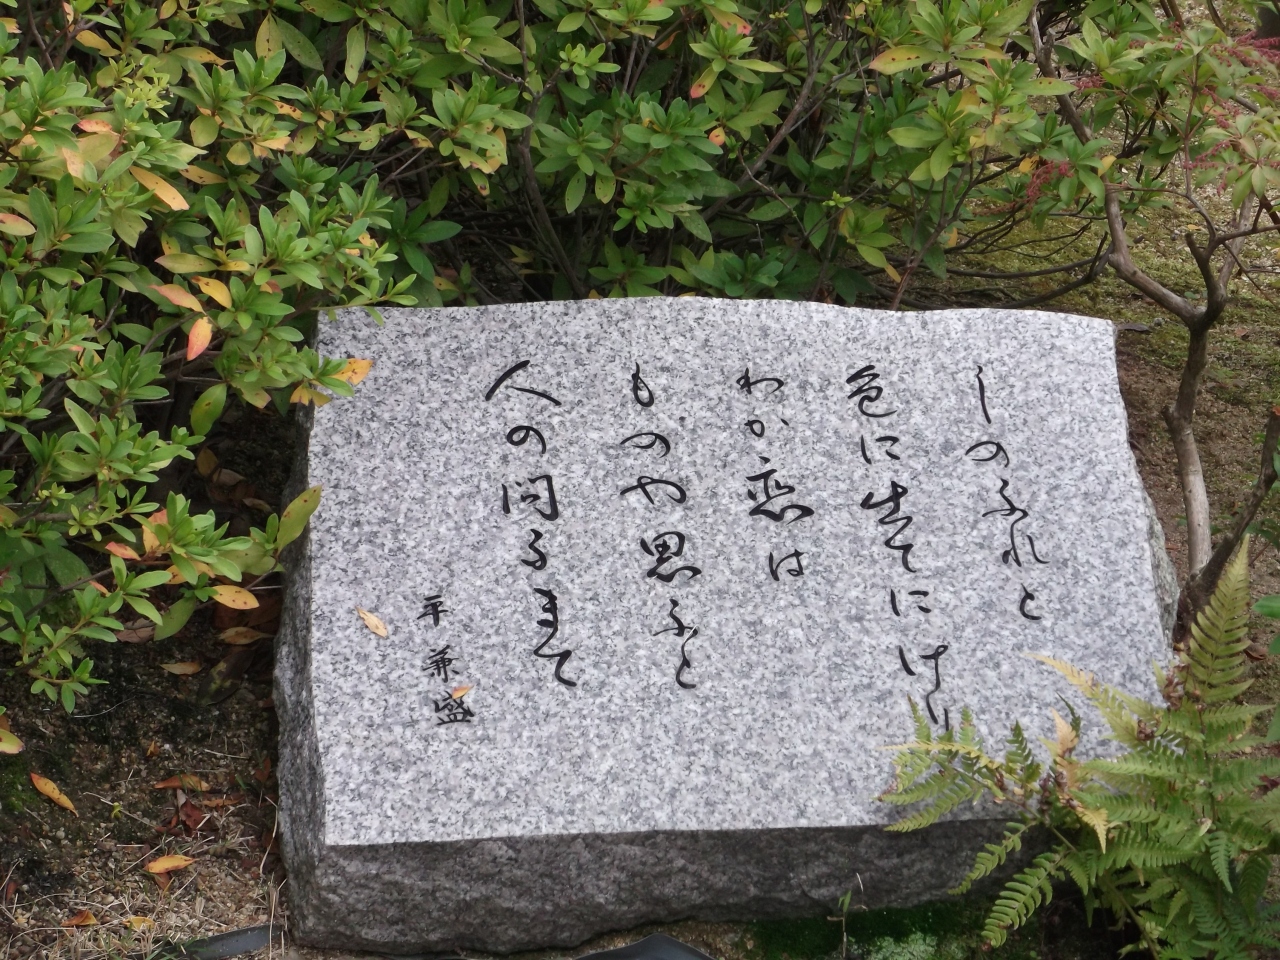 しのふれと
色に出てにけり
わか恋は
ものや思ふと
人の問ふまて
平兼盛